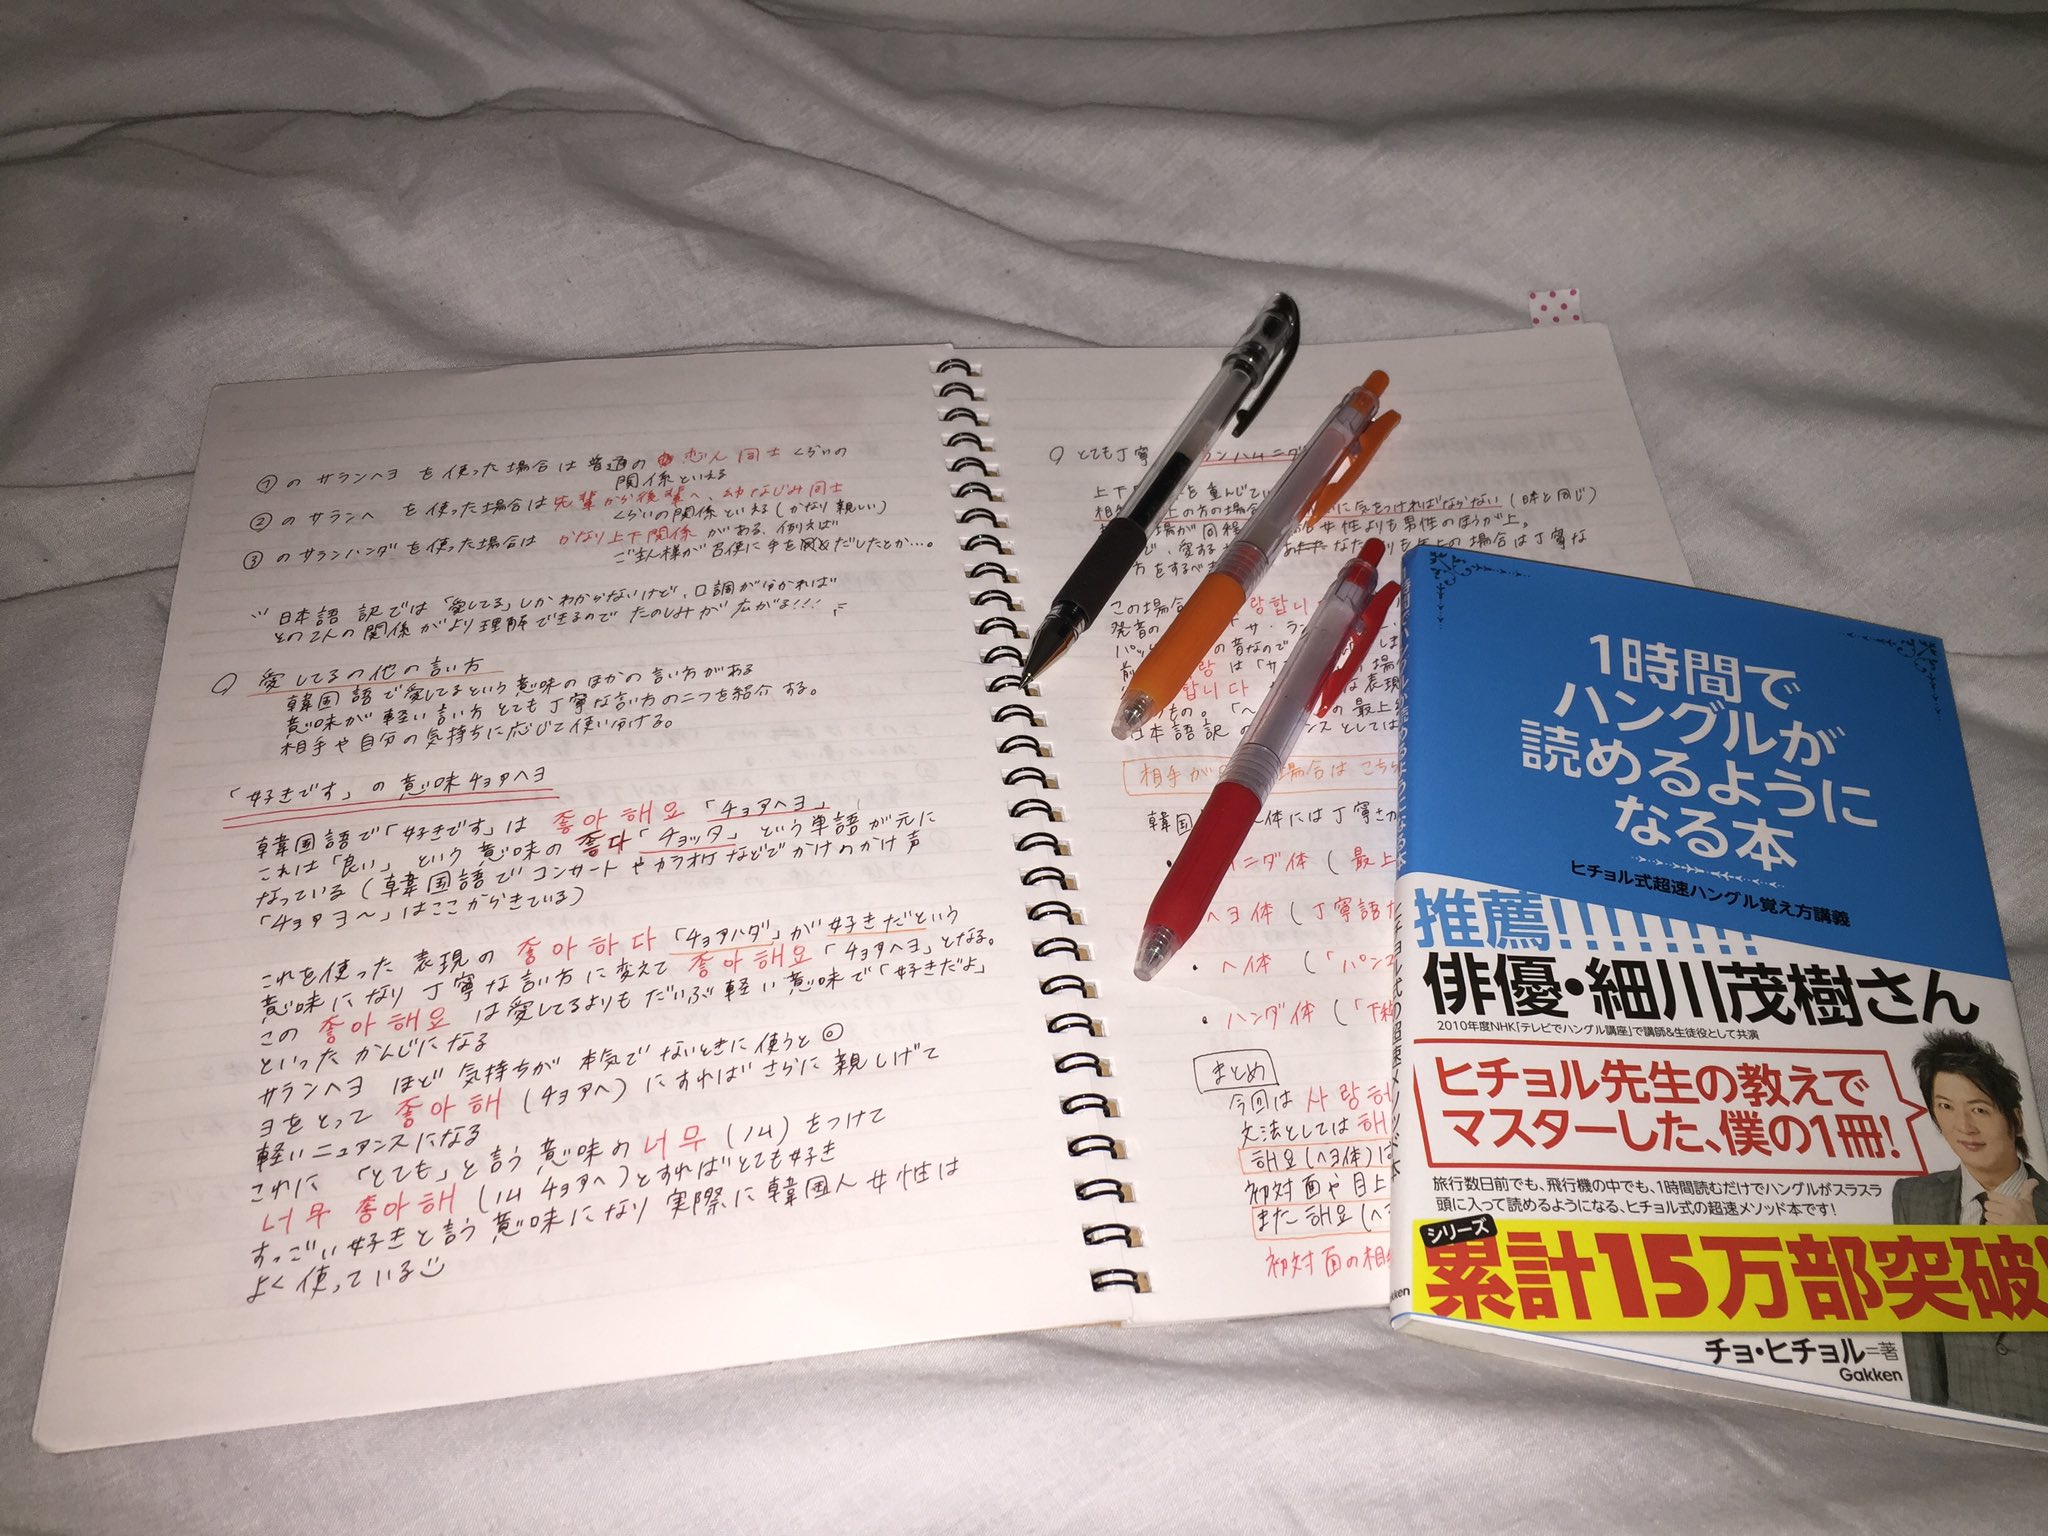 ①のサランヘヨを使った場合は普通の恋人同士くらいの
関係といえる
②のサランヘ を使った場合は先輩から後輩へ、幼なじみ同士
くらいの関係といえる(かなり親しい)
③のサランハンダを使った場合は かなり上下関係がある、例えば
ご主人様が召使に手をだしたとか…。
日本語訳では「愛してる」しかわからないけど、口調が分かれば
その2人の関係がより理解できるのでたのしみが広がる!!!
愛してるの他の言い方
韓国語で愛してるという意味のほかの言い方がある
意味が軽い言い方とても丁寧な言い方の二つを紹介する。
相手や自分の気持ちに応じて使い分ける。
「好きです」の意味チョアヘヨ
韓国語で「好きです」は 좋아해요「チョアヘヨ」
これは「良い」という意味の좋다「チョッタ」という単語が元に
なっている(韓国語でコンサートやカラオケなどでかけのかけ声
「チョアヨ〜」はここからきている)
これを使った表現の 좋아하다「チョアハダ」が好きだという
意味になり丁寧な言い方に変えて 좋아해요「チョアヘヨ」となる。
この 좋아해요 は愛してるよりもだいぶ軽い意味で「好きだよ」
といったかんじになる
サランヘヨほど気持ちが本気でないときに使うと◎
ヨをとって 좋아해(チョアヘ)にすればさらに親しげで
軽いニュアンスになる
これに「とても」と言う意味の너무(ノム)をつけて
너무 좋아해(ノム チョアヘ)とすればとても好き
すっごい好きと言う意味になり実際に韓国人女性は
よく使っている
とても丁寧 ランハムニダ
上下 を重んじてい
相 上の方の場合 に気をつければならない(日本と同じ)
場が同程 女性よりも男性のほうが上。
で、愛する なた りも年上の場合は丁寧な
方をするべき
この場合 랑합니
発音の サ・ラン
パッ の音なので
前 랑 は「サ
합니다
もの。「〜 の最上
日本語訳の ンスとしては
相手が 場合はこちら
韓国 体には丁寧さが
・ ニダ体(最上
ヘヨ体(丁寧語
・ヘ体 (「パン
・ハンダ体(「
まとめ
今回は 사랑해
文法としては해
해요(ヘヨ体)は
初対面や目上
また해요(ヘ
初対面の相
1時間で
ハングルが
読めるように
なる本
ヒチョル式超速ハングル覚え方講義
推薦!!!!!!!!
俳優・細川茂樹さん
2010年度NHK「テレビでハングル講座」で講師&生徒役として共演
ヒチョル先生の教えで
マスターした、僕の1冊!
旅行数日前でも、飛行機の中でも、1時間読むだけでハングルがスラスラ
頭に入って読めるようになる、ヒチョル式の超速メソッド本です!
シリーズ
累計15万部突破!
チョ・ヒチョル=著
Gakken